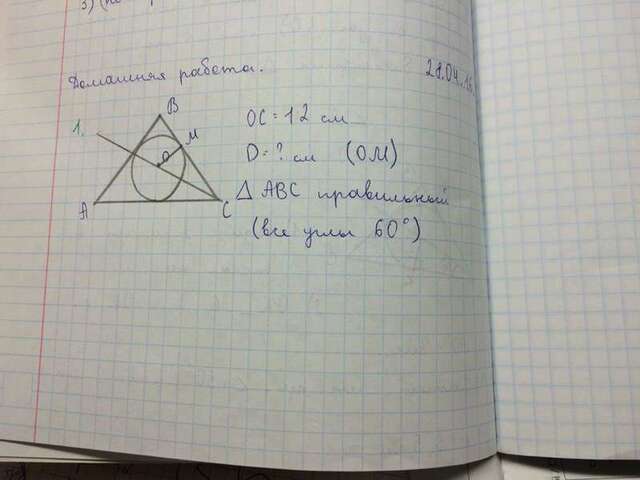 3) (по
Домашняя работа.
21.04.16.
1.
B
M
O
A
C
OC = 12 см
D = ? см (OM)
△ ABC правильный
(все углы 60°)